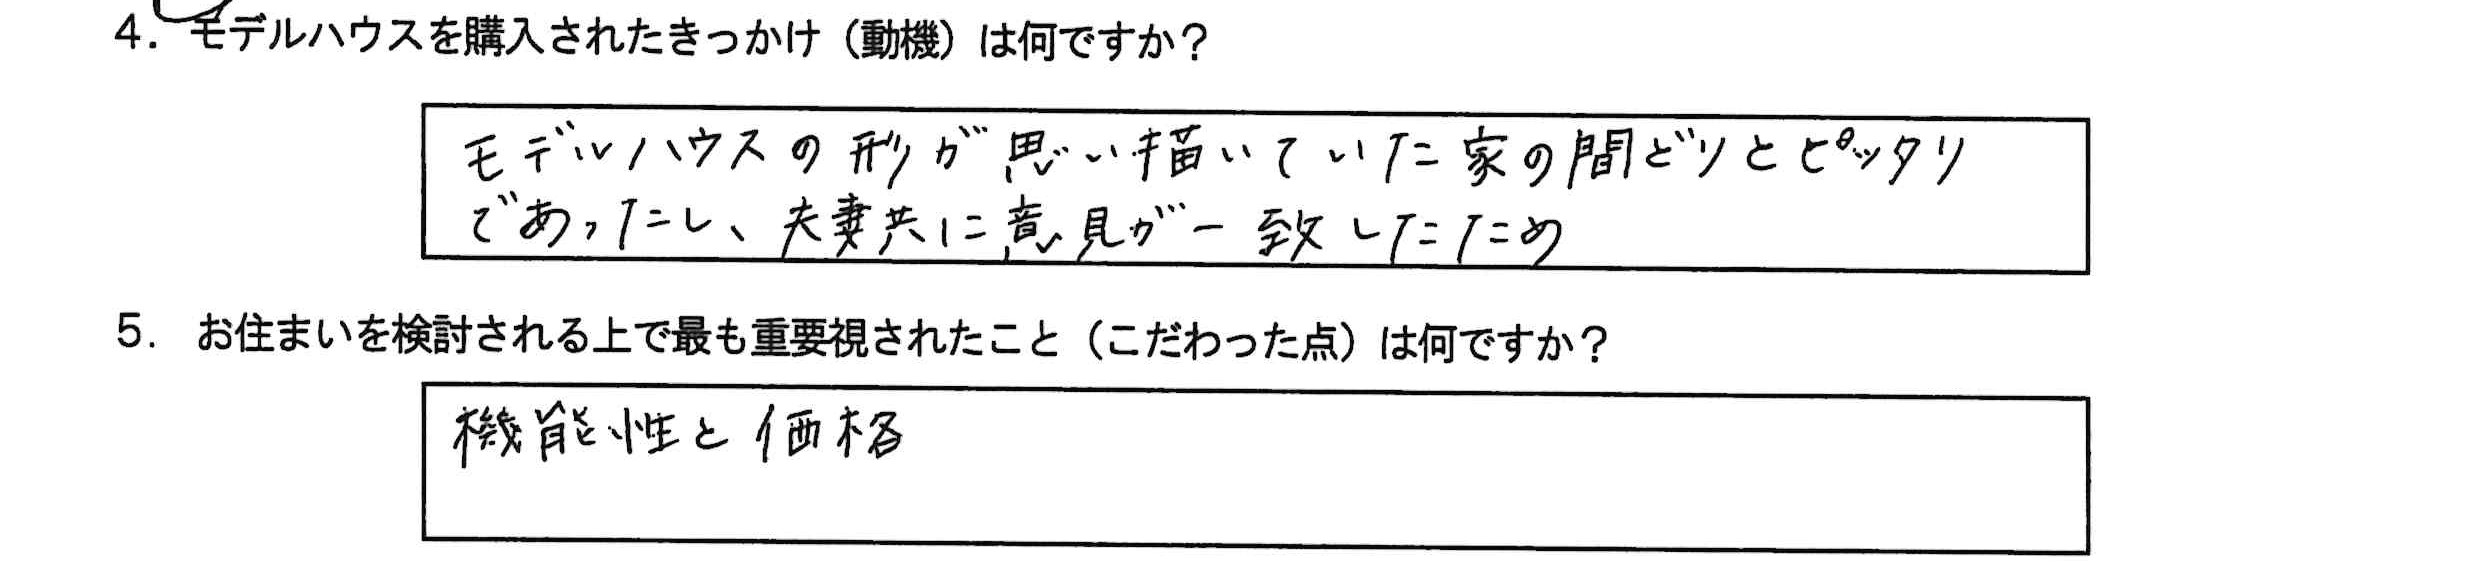 4. モデルハウスを購入されたきっかけ（動機）は何ですか？
モデルハウスの形が思い描いていた家の間どりとピッタリ
であったし、夫妻共に意見が一致したため
5. お住まいを検討される上で最も重要視されたこと（こだわった点）は何ですか？
機能性と価格